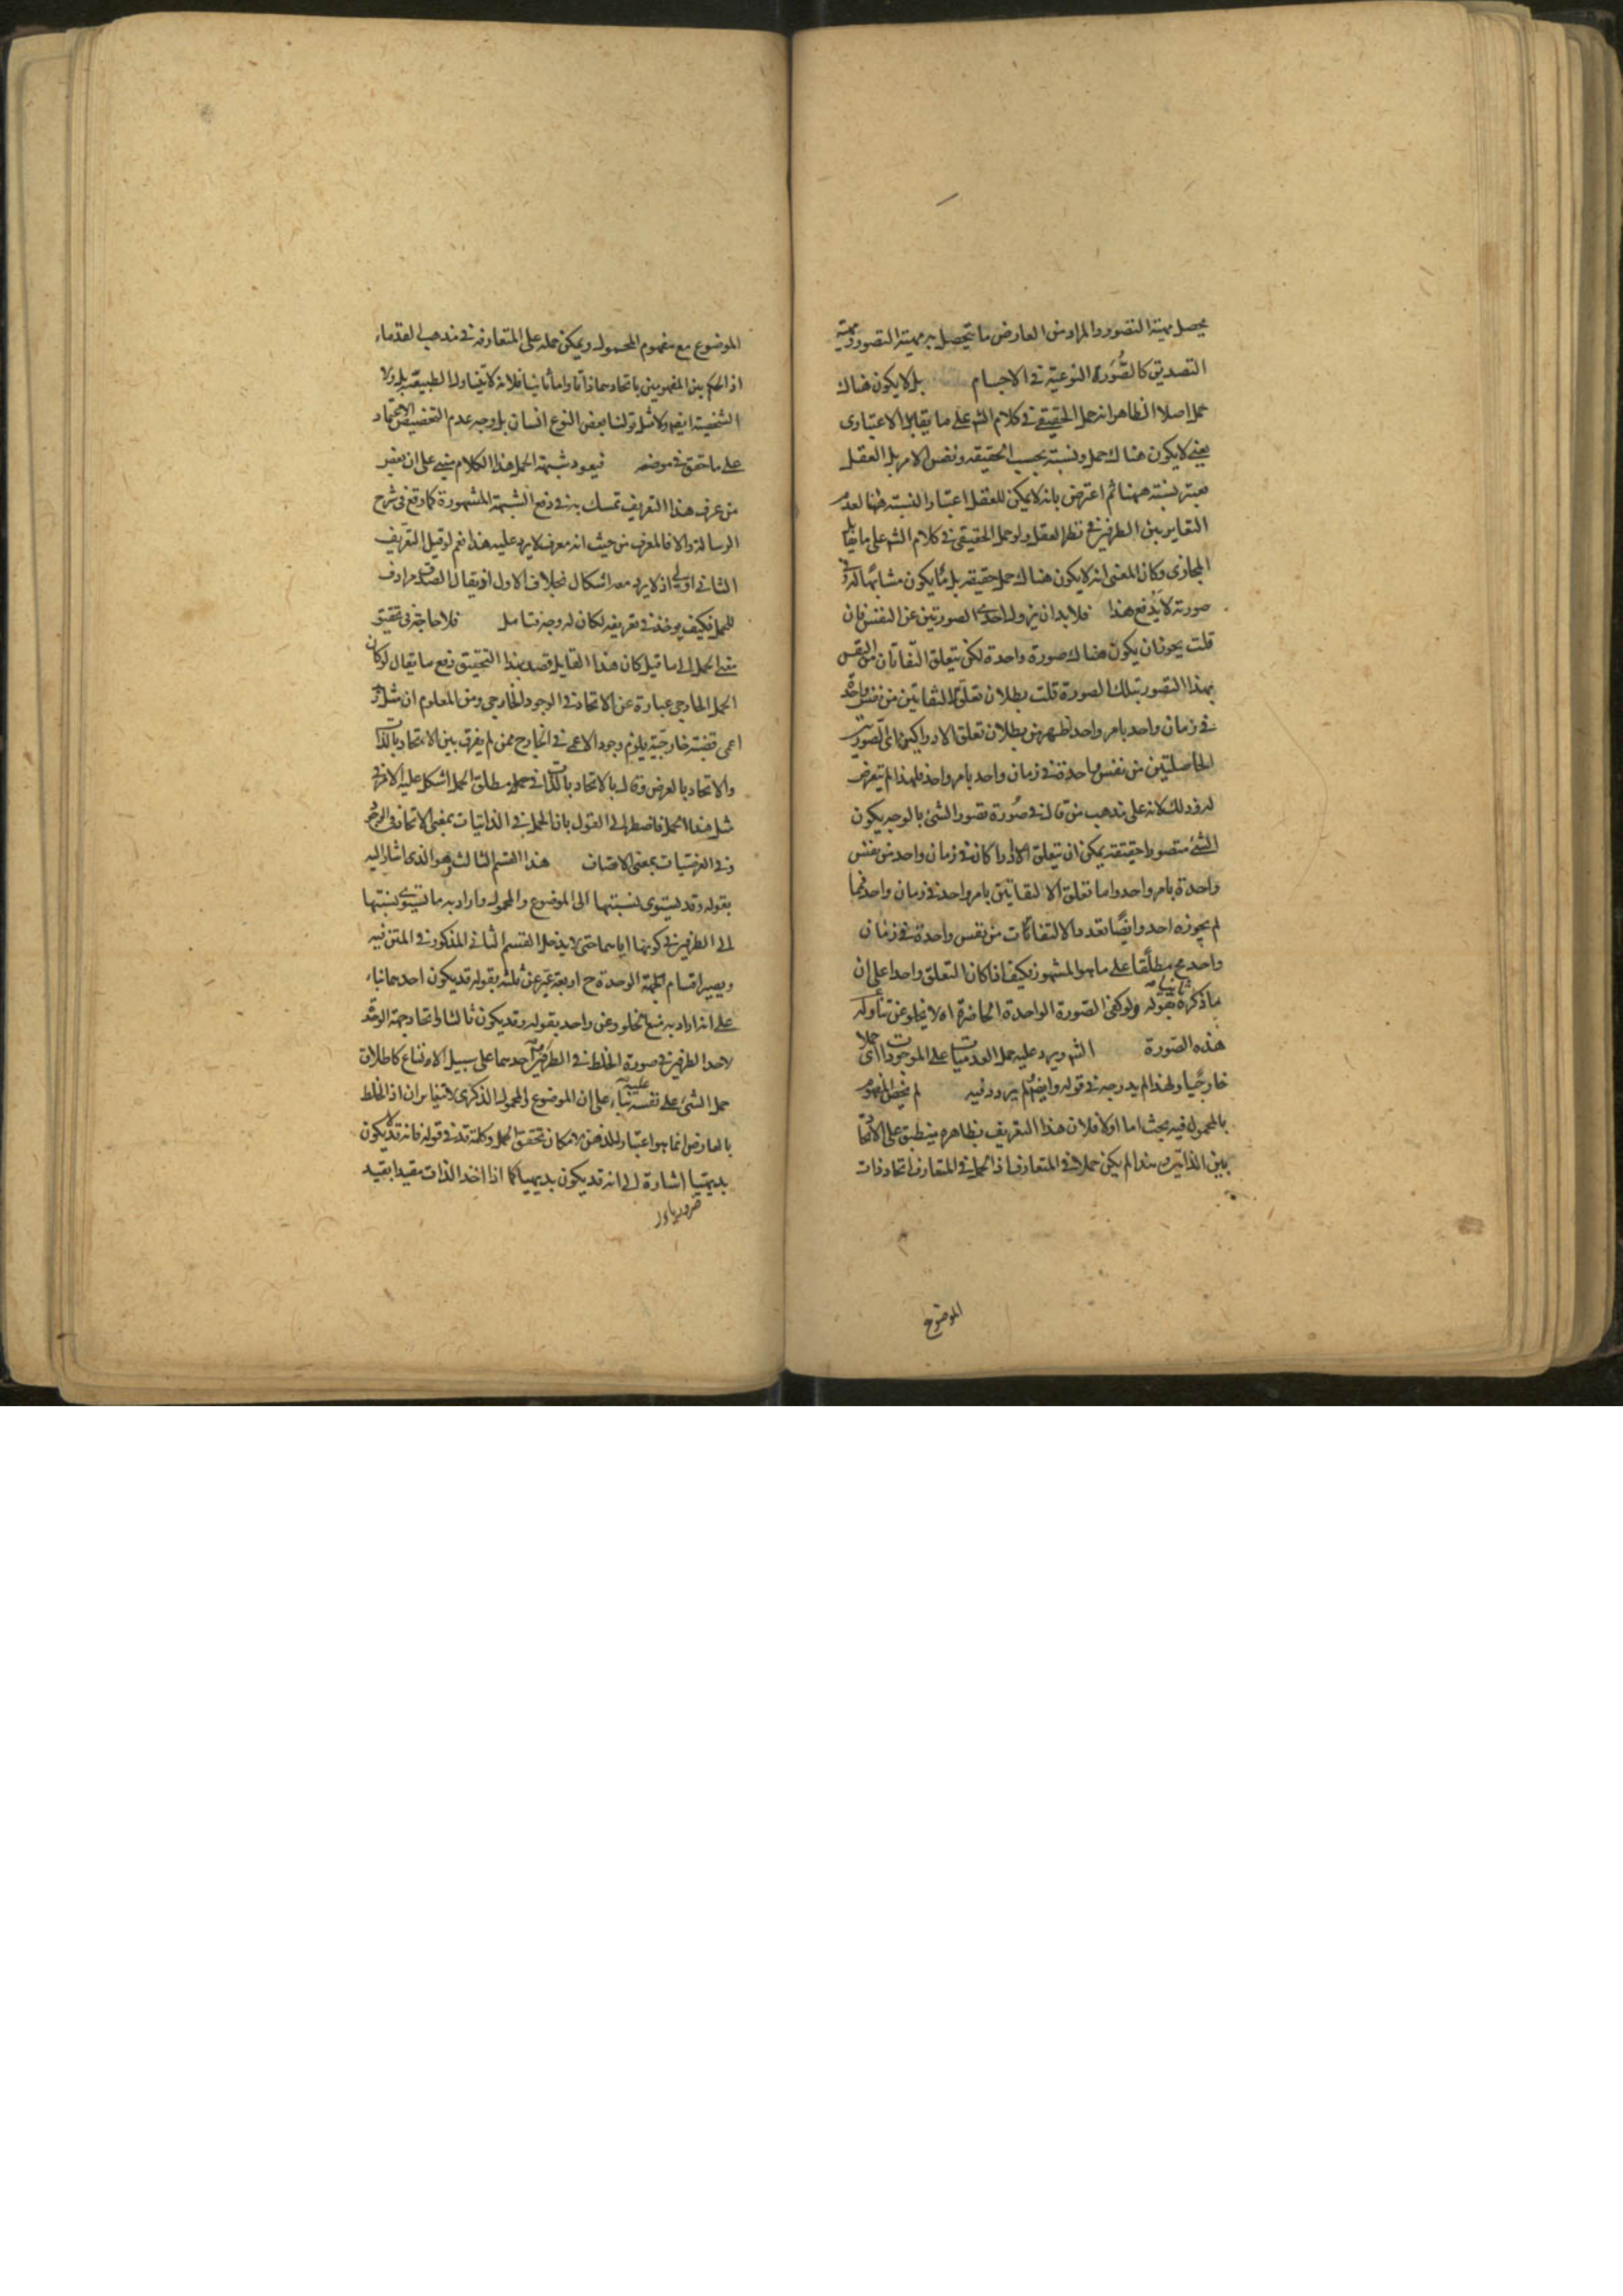 يحصل مهية التصور والمراد من العارض ما يتحصل به مهية التصور ومهية
التصديق كالصورة النوعية في الاجسام بل لا يكون هناك
حمل اصلا الظاهر انه حمل الحقيقي في كلام الشه على ما يقابل الاعتبارى
يعني لا يكون هناك حمل ونسبة بحسب الحقيقه ونفس الامر بل العقل
يعتبر نسبته ههنا ثم اعترض بانه لا يمكن للعقل اعتبار النسبته ههنا لعدم
التغاير بين الطرفين في نظر العقل ولو حمل الحقيقي في كلام الشه على ما يقابل
المجازى وكان المعنى انه لا يكون هناك حمل حقيقه بل ما يكون مشابها له في
صورته لا يدفع هذا فلا بد ان يزول احدى الصورتين عن النفس فان
قلت يجوز ان يكون هناك صورة واحدة لكن يتعلق التفاتان من النفس
بهذا التصور بتلك الصورة قلت بطلان تعلق التفاتين من نفس واحدة
في زمان واحد بامر واحد اظهر من بطلان تعلق الادراكين اى الصورتين
الحاصلتين من نفس واحدة في زمان واحد بامر واحد فلهذا لم يتعرض
له وذلك لانه على مذهب من قال في صورة تصور الشئ بالوجه يكون
الشئ متصورا حقيقة يمكن ان يتعلق الادراكان في زمان واحد من نفس
واحدة بامر واحد واما تعلق الالتفاتين بامر واحد في زمان واحد فما
لم يجوزه احد وايضا تعدد الالتفاتات من نفس واحدة في زمان
واحد مح مطلقا على ما هو المشهور فكيف اذا كان التعلق واحدا على ان
ما ذكره ثانيا بقوله ولو كفى الصورة الواحدة الحاضرة اه لا يخلو عن تناوله
هذه الصورة الشه ويرد عليه حمل العدميات على الموجودات اى حملا
خارجيا ولهذا لم يدرجه في قوله وايضا لم يردد فيه لم يخص المفهوم
بالمحمول فيه بحث اما اولا فلان هذا التعريف بظاهره ينطبق على الاتحاد
بين الذاتين وهذا لم يكن حملا في المتعارف اذ الحمل في المتعارف اتحاد ذات
الموضوع
الموضوع مع مفهوم المحمول ويمكن حمله على المتعارفة في مذهب القدماء
اذ الحكم بين المفهومين باتحادهما ذاتا واما ثانيا فلانه لا يتناول الطبيعة بل ولا
الشخصية ايضا ولا مثل قولنا بعض النوع انسان بل وجه عدم التخصيص الاعتماد
على ما تحقق في موضعه فيعود شبهة الحمل هذا الكلام مبني على ان بعض
من عرف هذا التعريف تمسك به في دفع الشبهة المشهورة كما وقع في شرح
الرسالة والا فالمعرف من حيث انه معرف لا يرد عليه هذا نعم لو قيل التعريف
الثاني اولى اذ لا يرد معه اشكال بخلاف الاول او يقال الصدق مرادف
للحمل فكيف يوخذ في تعريفه لكان له وجه تامل فلا حاجة في تحقيق
معنى الحمل الى ما قيل كان هذا القايل قصد بهذا التحقيق دفع ما يقال لو كان
الحمل الخارجي عبارة عن الاتحاد في الوجود الخارجي ومن المعلوم ان مثل زيد
اعمى قضية خارجية يلزم وجود الاعمى في الخارج فمن لم يفرق بين الاتحاد بالذات
والاتحاد بالعرض وقال بالاتحاد بالذات في حمل مطلق الحمل اشكل عليه الامر في
مثل هذا الحمل فاضطر الى القول بان الحمل في الذاتيات بمعنى الاتحاد في الوجود
وفي العرضيات بمعنى الاتصاف هذا القسم الثالث هو الذى اشار اليه
بقوله وقد يستوى نسبتها الى الموضوع والمحمول واراد به ما يستوى نسبتها
الى الطرفين في كونها اياهما حتى لا يدخل القسم الثاني المذكور في المتن فيه
ويصير اقسام الجهة الوحدة ح اربعة عبر عن ثلثه بقوله قد يكون احدهما بناء
على انه اراد به منع الخلو وعن واحد بقوله وقد يكون ثالثا واتحاد جهة الوحدة
لاحد الطرفين في صورة الخلط في الطرفين احدهما على سبيل الامتناع كاطلاق
حمل الشئ على نفسه عليه بناء على ان الموضوع والمحمول الذكرى لا يتغايران اذ الخلط
بالعارض انما هو اعتبار للذهن لامكان تحقق الحمل وكلمة قد في قوله فانه قد يكون
بديهيا اشارة الى انه قد يكون بديهيا كما اذا اخذ الذات مقيدا بقيد